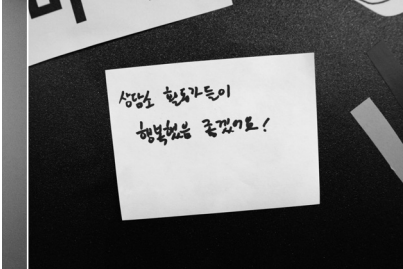 상담소 활동가들이
행복했음 좋겠어요!